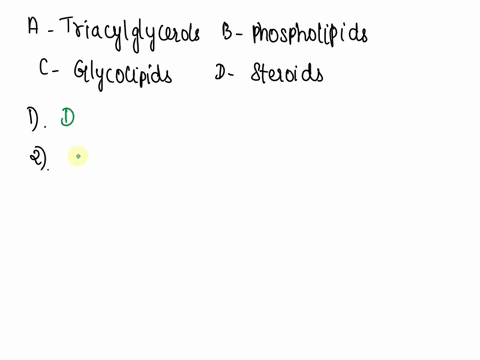 A - Triacylglycerols B - phospholipids
C - Glycolipids D - Steroids
1). D
2).